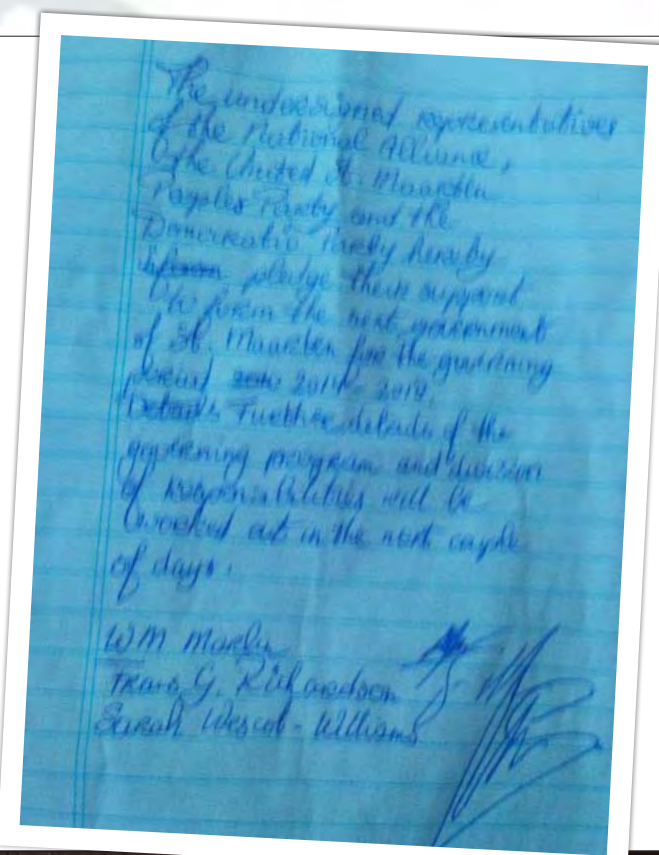 The undersigned representatives
of the National Alliance,
the United St. Maarten
Peoples Party and the
Democratic Party hereby
pledge their support
to form the next government
of St. Maarten for the governing
period 2014 - 2018.
Details Further details of the
governing program and division
of responsibilities will be
worked out in the next couple
of days.
WM Marlin
Frans G. Richardson
Sarah Wescot-Williams